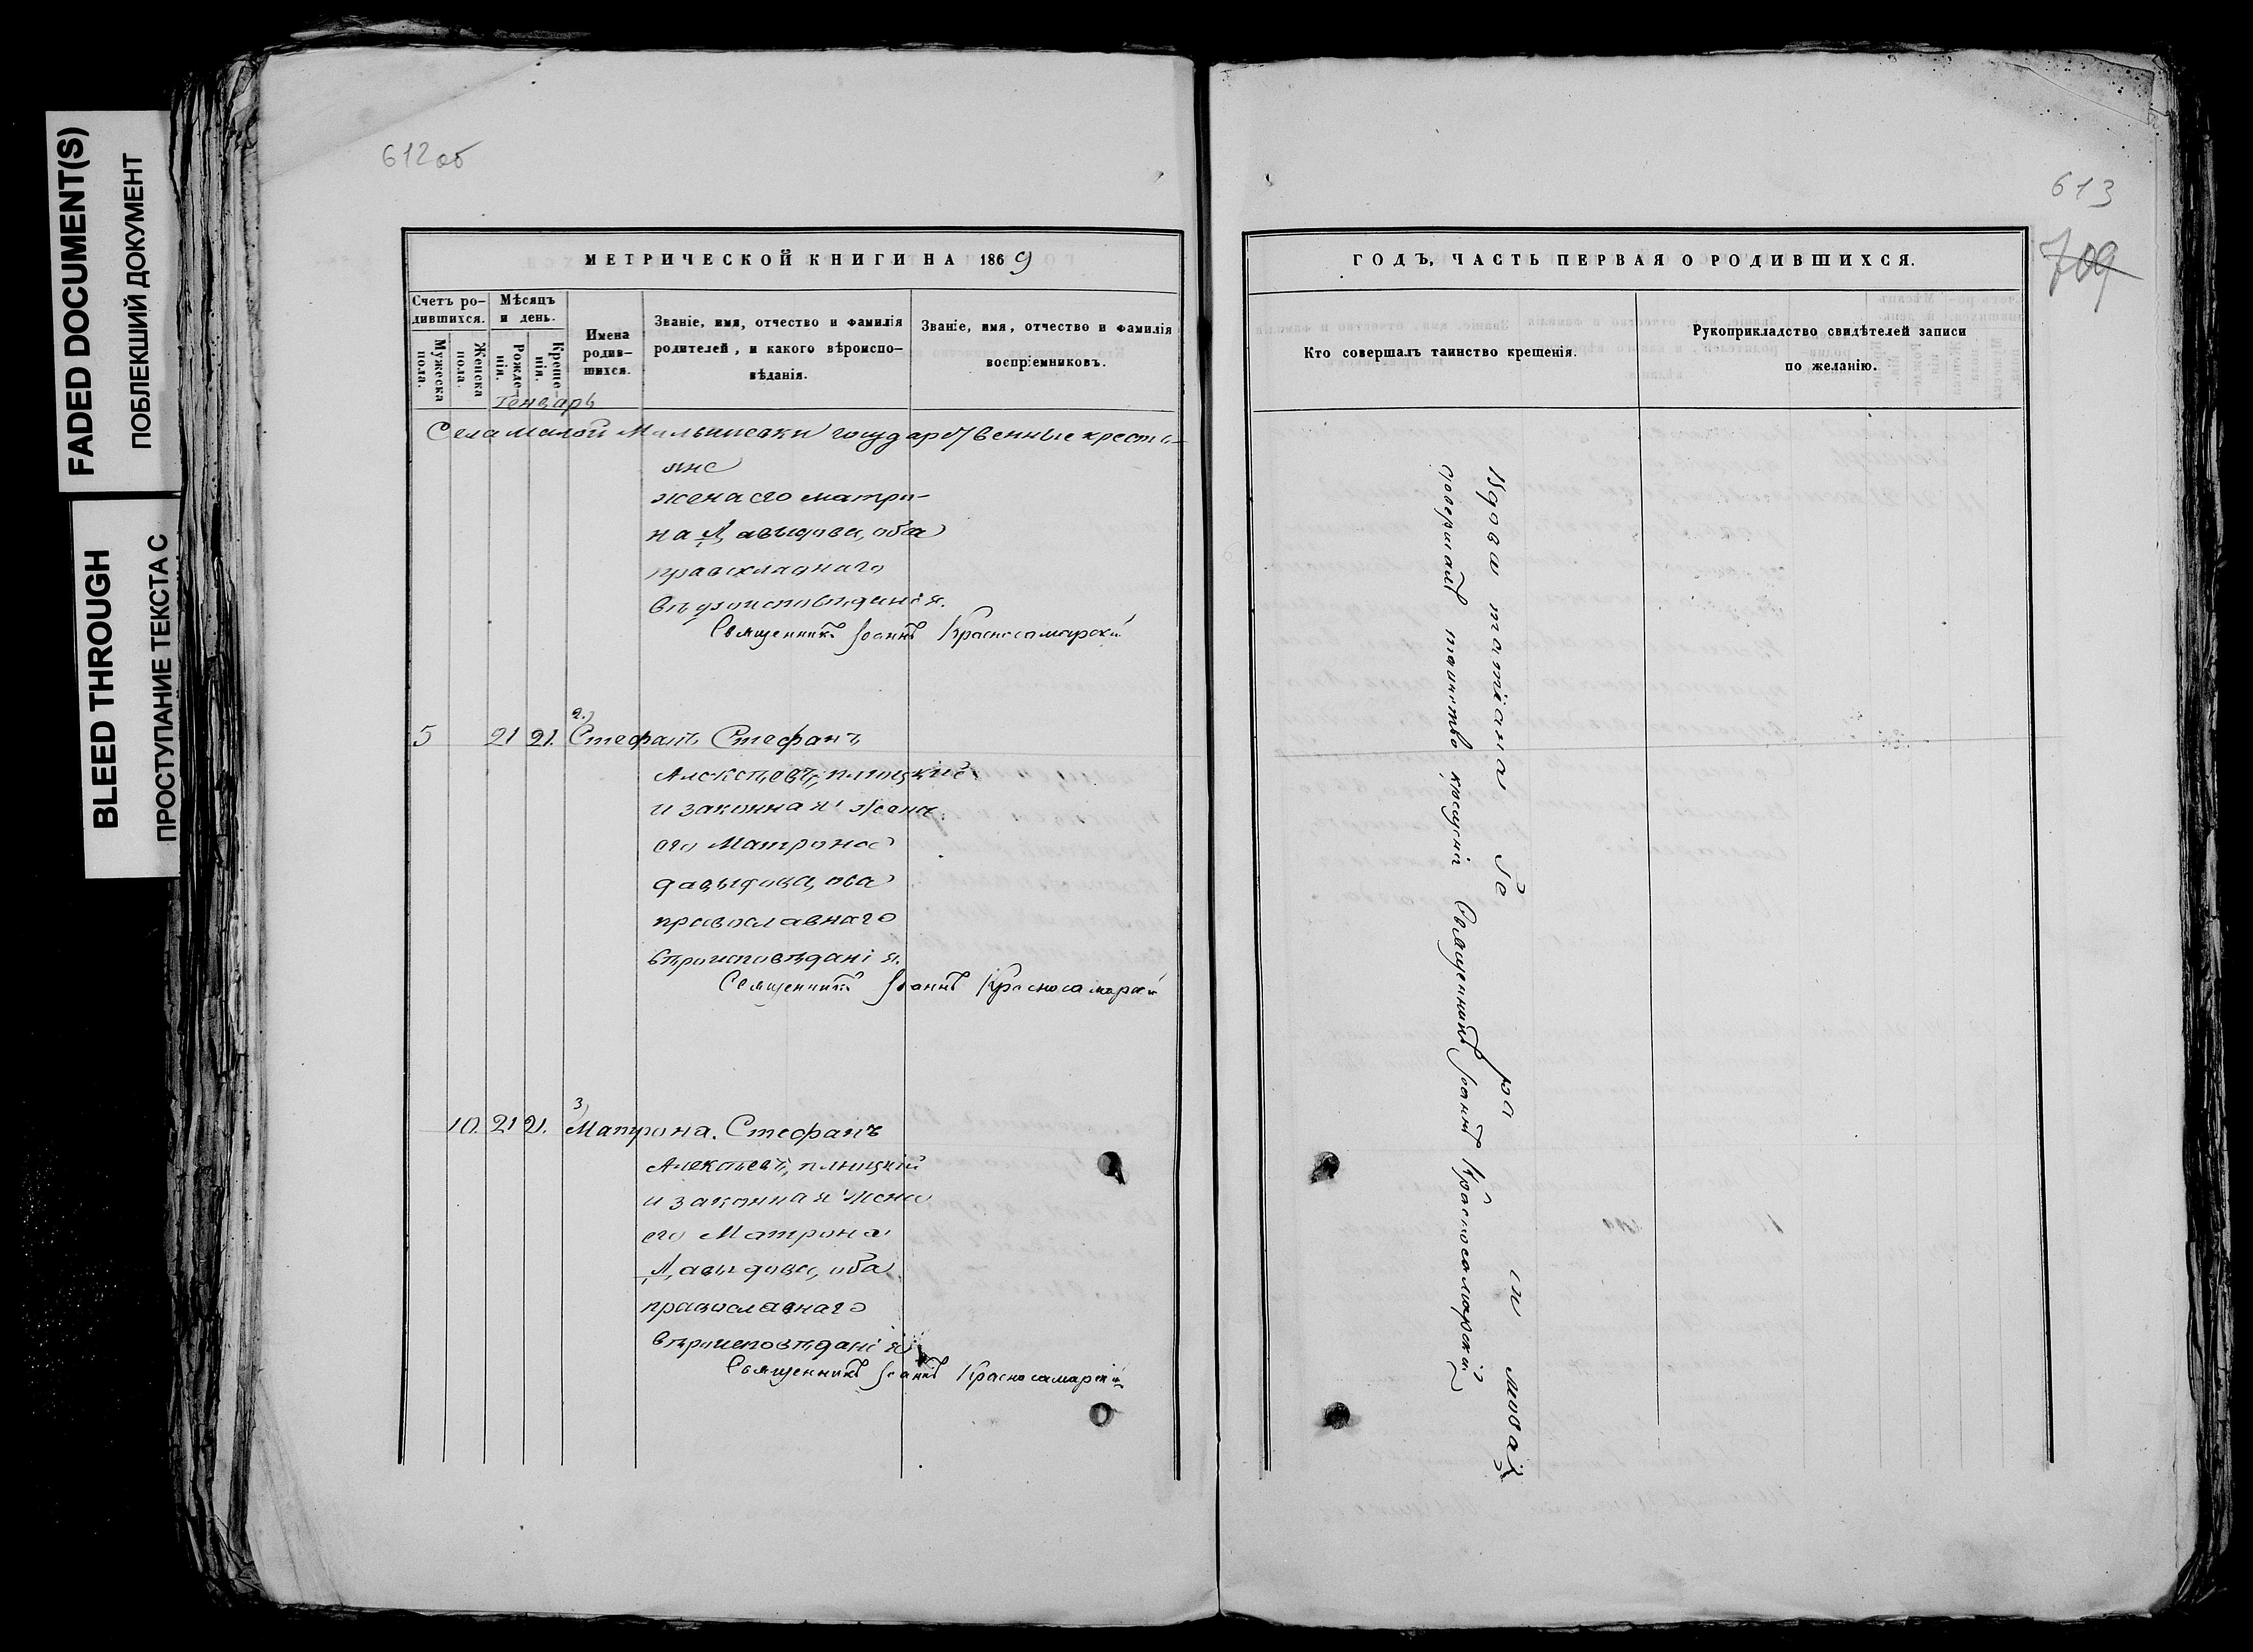 FADED DOCUMENT(S)
ПОБЛЕКШИЙ ДОКУМЕНТ
BLEED THROUGH
ПРОСТУПАНИЕ ТЕКСТА С
612об
МЕТРИЧЕСКОЙ КНИГИ НА 1869
Счетъ ро-
дившихся.
Мужеска
пола.
Женска
пола.
Мѣсяцъ
и день.
Рожде-
нія.
Креще-
нія.
Имена
родив-
шихся.
Званіе, имя, отчество и фамилія
родителей, и какого вѣроиспо-
вѣданія.
Званіе, имя, отчество и фамилія
воспріемниковъ.
Генварь
Села Малой Малышевки государственные кресть-
яне
жена его матро-
на Давыдова, оба
православнаго
вѣроисповѣданія.
Священникъ Іоаннъ Красносамарскій
2.)
5 21 21. Стефанъ Стефанъ
Алексѣевъ,
и законная жена
его Матрона
давыдова, оба
православнаго
вѣроисповѣданія.
Священникъ Іоаннъ Красносамарскій
3)
10. 21 21. Матрона. Стефанъ
Алексѣевъ,
и законная жена
его Матрона
Давыдова, оба
православнаго
вѣроисповѣданія
Священникъ Іоаннъ Красносамарскій
613
709
ГОДЪ, ЧАСТЬ ПЕРВАЯ О РОДИВШИХСЯ.
Кто совершалъ таинство крещенія.
Рукоприкладство свидѣтелей записи
по желанію.
Вдова татіана
совершалъ таинство крещенія Священникъ Іоаннъ Красносамарскій